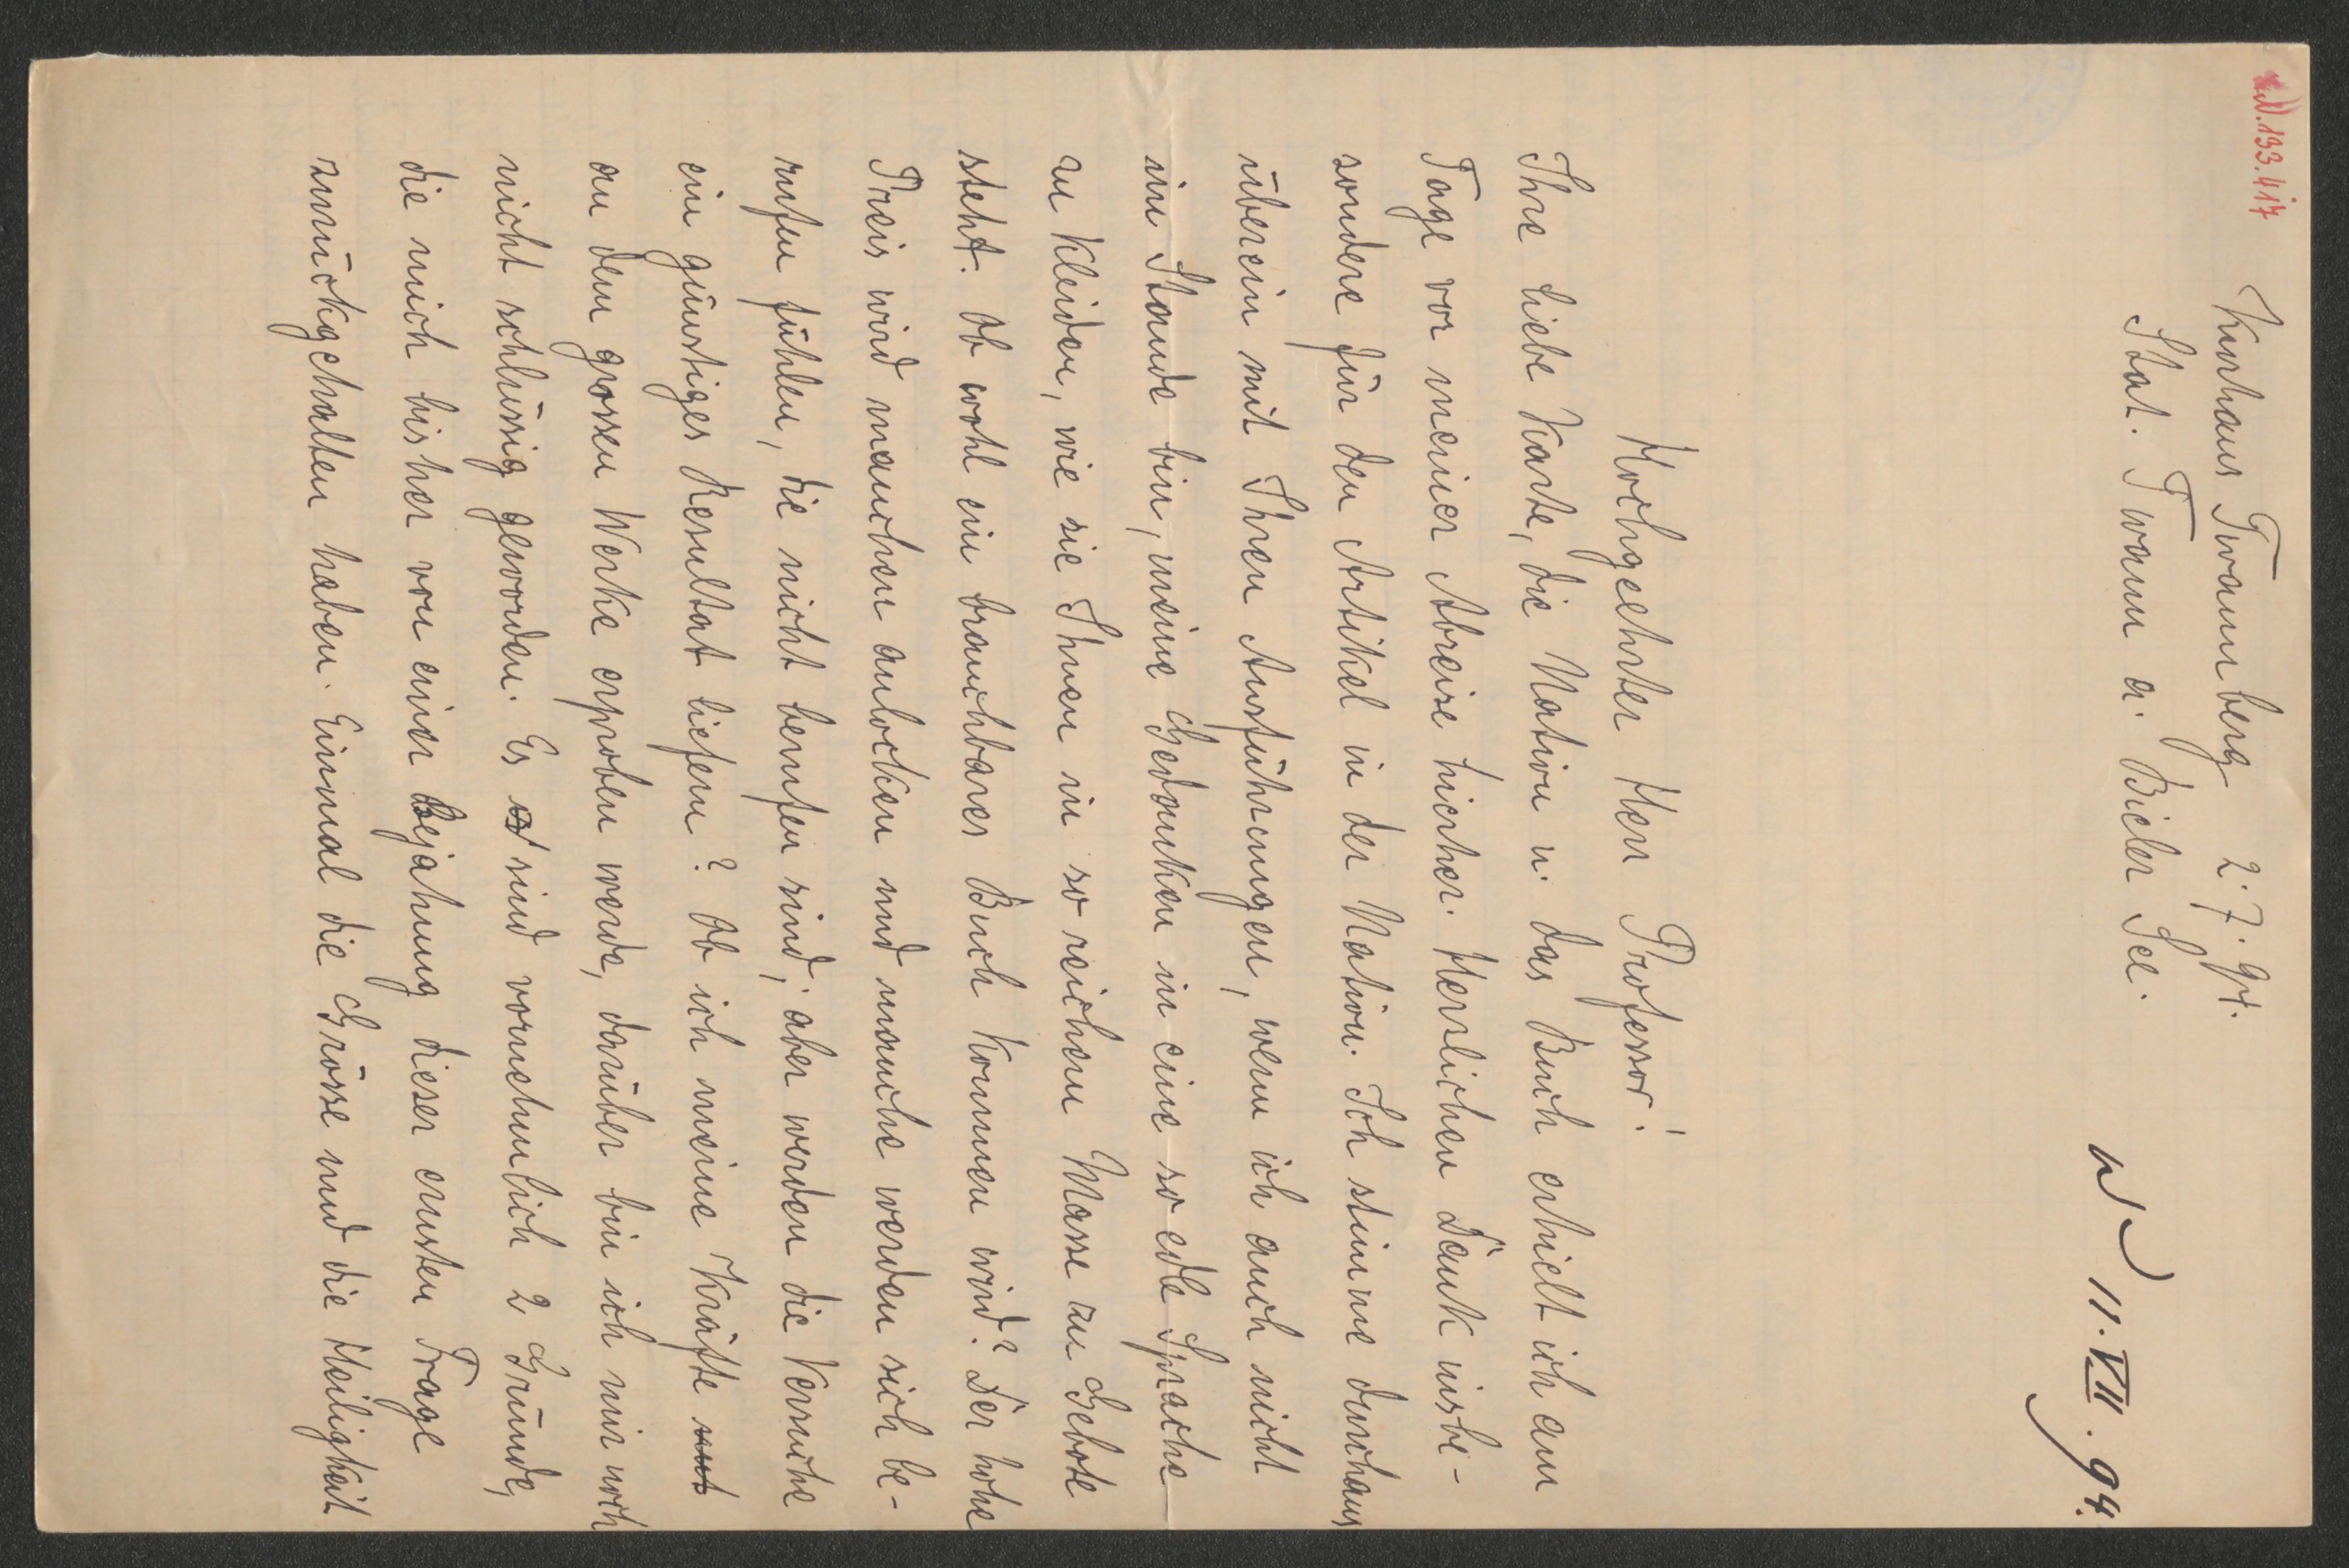 Kurhaus Twannberg 2.7.94.
Stat. Twann a. Bieler See.
W 11.VII.94.
Hochgeehrter Herr Professor!
Ihre liebe Karte, die Nation u. das Buch erhielt ich am
Tage vor meiner Abreise hierher. Herzlichen Dank insbe-
sondere für den Artikel in der Nation. Ich stimme durchaus
überein mit Ihren Ausführungen, wenn ich auch nicht
im Stande bin, meine Gedanken in eine so edle Sprache
zu kleiden, wie sie Ihnen in so reichem Masse zu Gebote
steht. Ob wohl ein brauchbares Buch kommen wird? Der hohe
Preis wird manchen anlocken und manche werden sich be-
rufen fühlen, die nicht berufen sind; aber werden die Versuche
ein günstiges Resultat liefern? Ob ich meine Kräfte
an dem grossen Werke erproben werde, darüber bin ich mir noch
nicht schlüssig geworden. Es sind vornehmlich 2 Gründe,
die mich bisher von einer Bejahung dieser ernsten Frage
zurückgehalten haben. Einmal die Grösse und die Heiligkeit